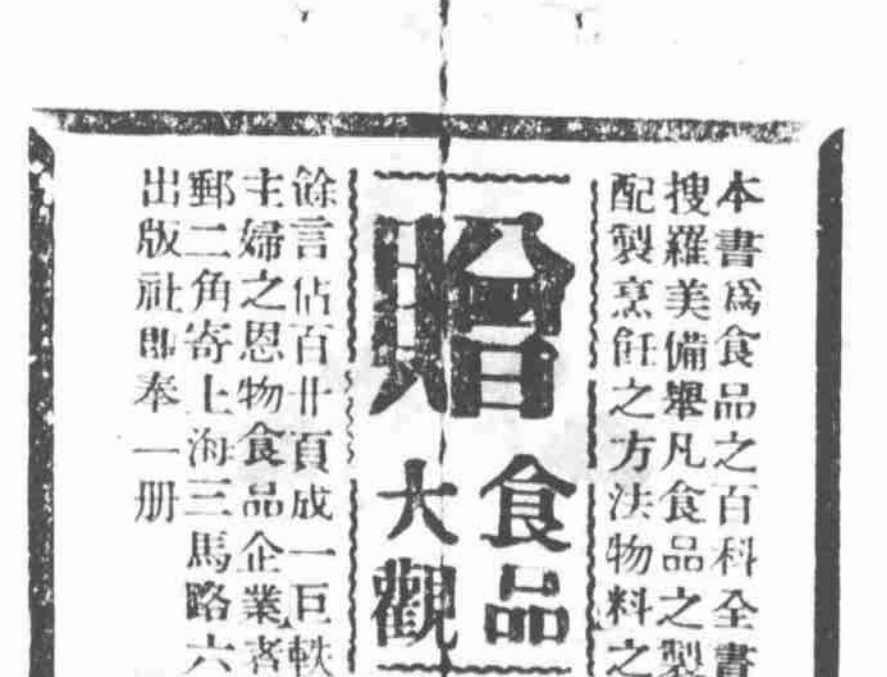 本書爲食品之百科全書
搜羅美備舉凡食品之製
配製烹飪之方法物料之
贈
食品
大觀
餘言佔百卅頁成一巨軼
主婦之恩物食品企業者
郵二角寄上海三馬路六
出版社即奉一册